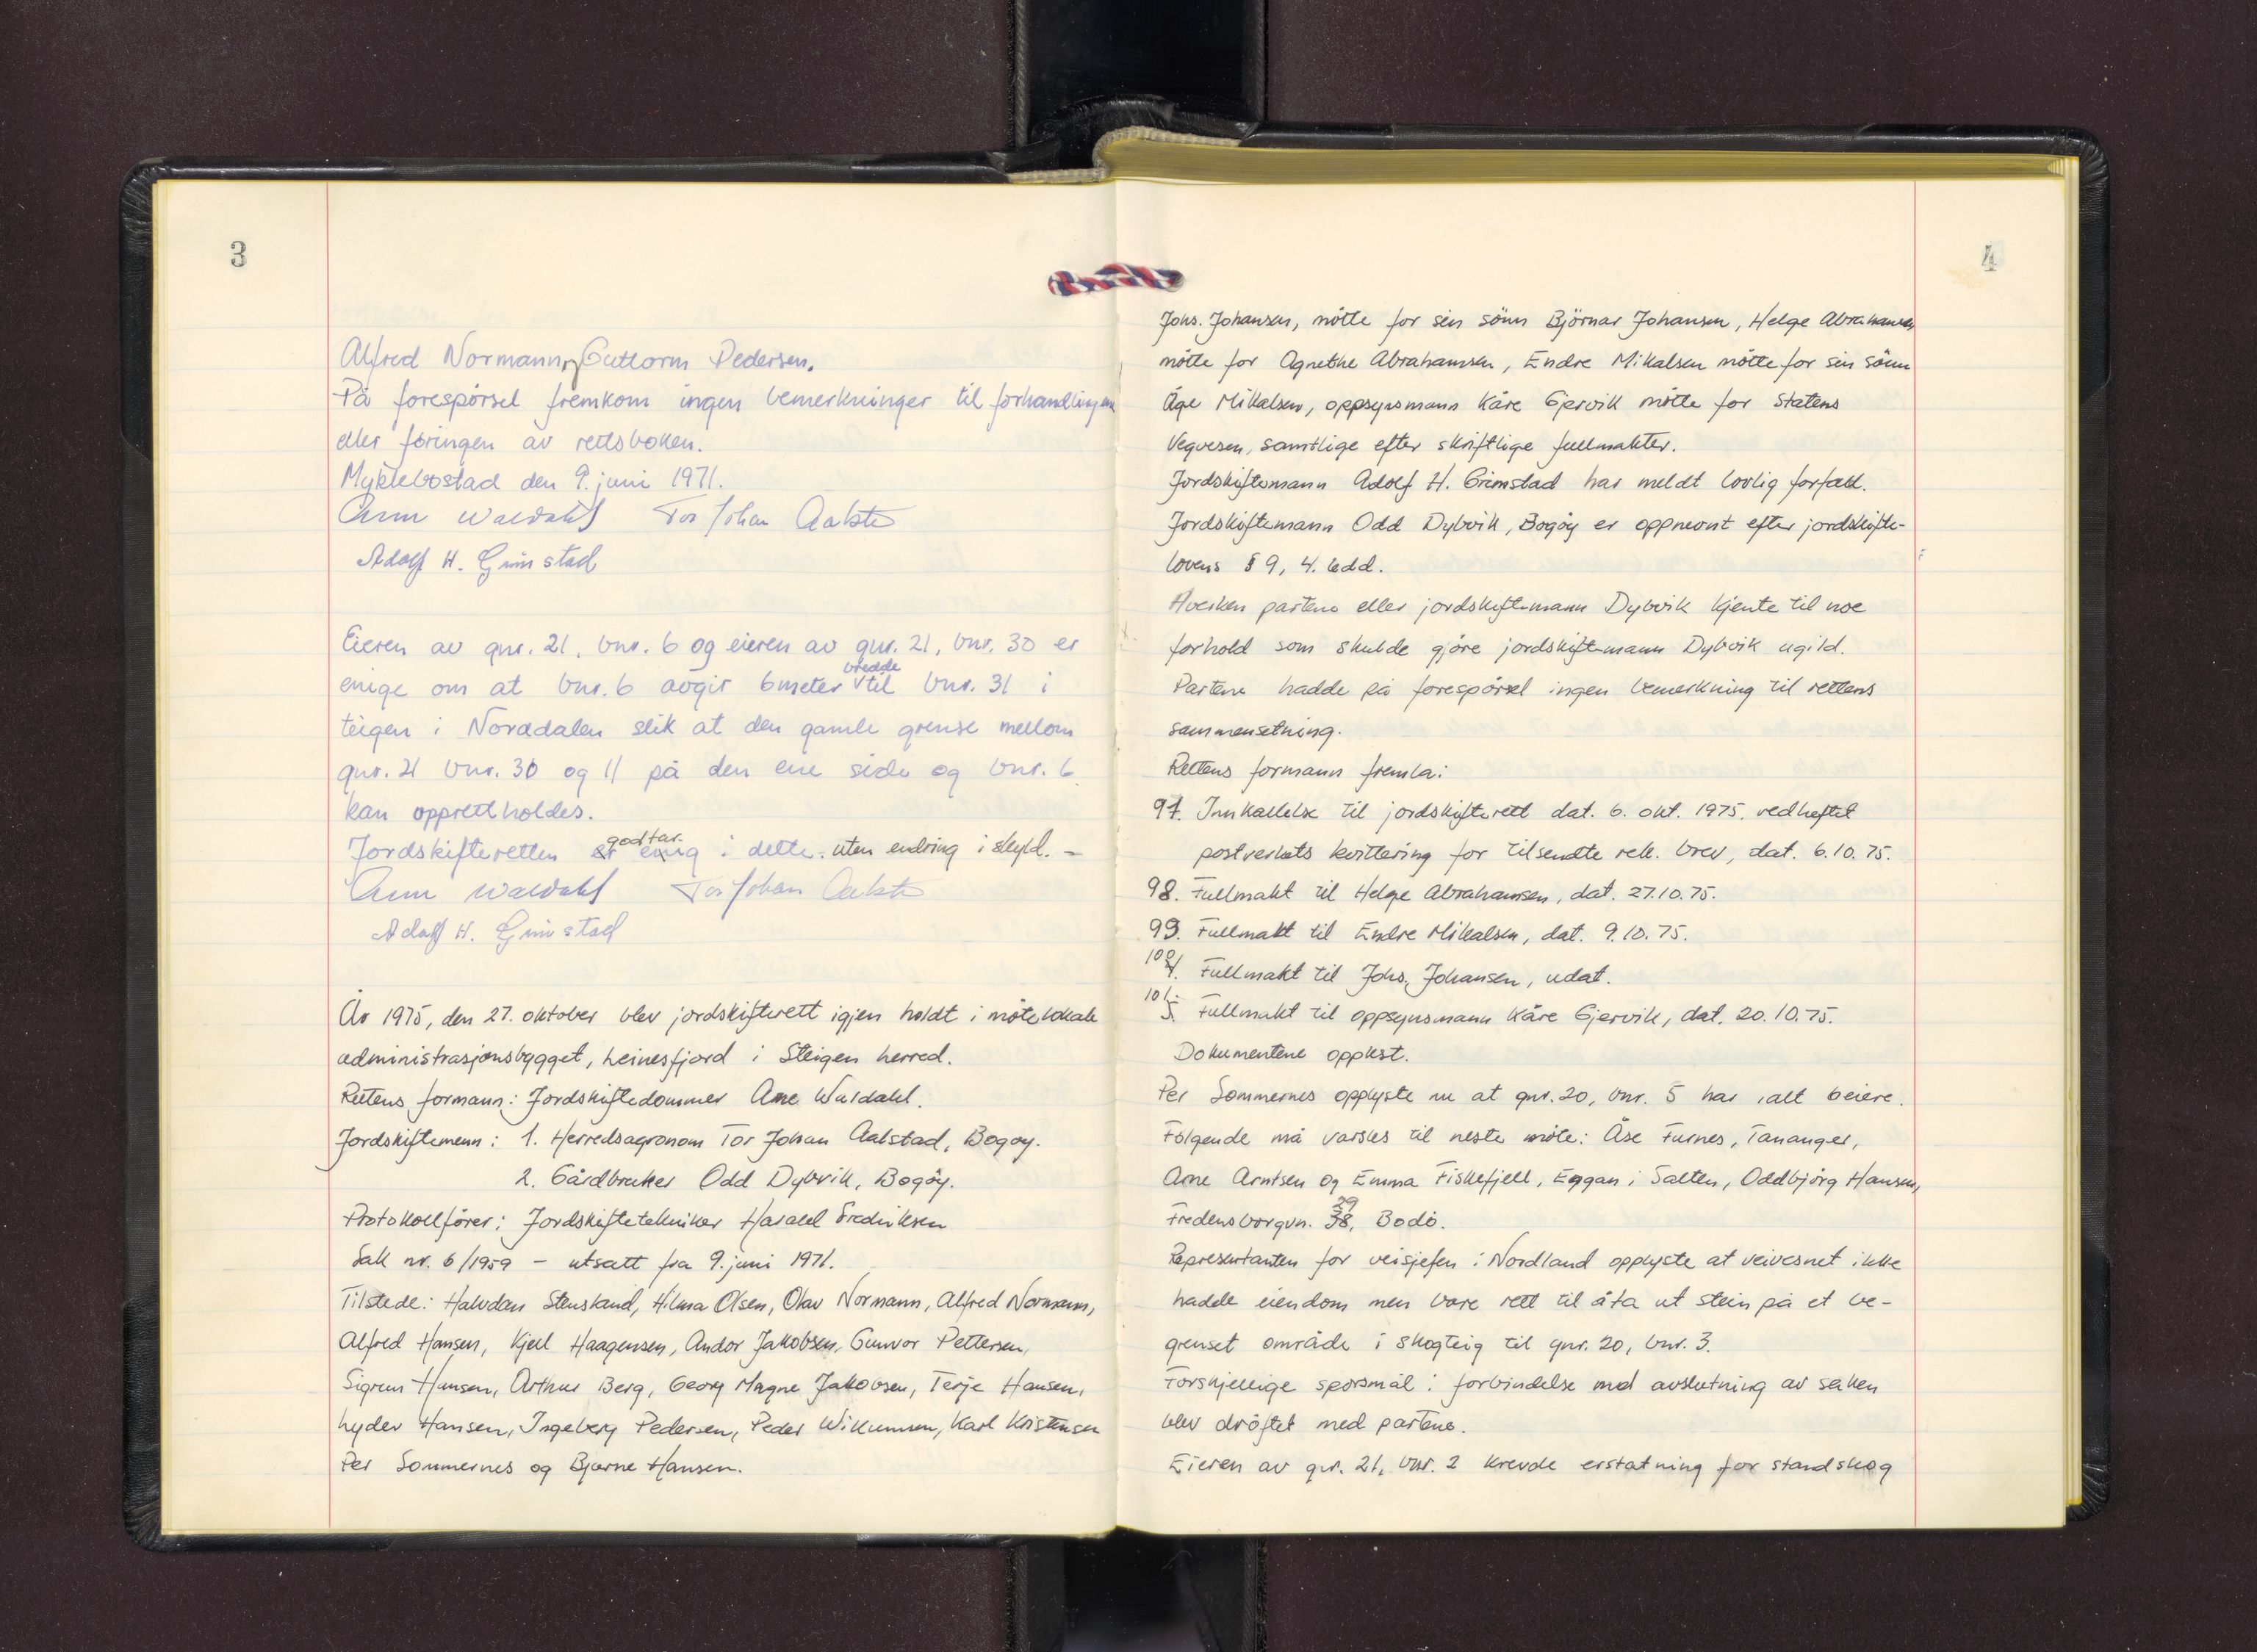 3
Alfred Normann, Guttorm Pedersen.
På forespörsel fremkom ingen bemerkninger til forhandlingen
eller föringen av rettsboken.
Myklebostad den 9. juni 1971.
Arne Waldahl Tor Johan Aalstad
Adolf H. Grimstad
Eieren av gnr. 21, bnr. 6 og eieren av gnr. 21, bnr. 30 er
bredde
enige om at bnr. 6 avgir 6 meter til bnr. 31 i
teigen i Norddalen slik at den gamle grense mellom
gnr. 21 bnr. 30 og 11 på den ene side og bnr. 6
kan opprettholdes.
godtar
Jordskifteretten er enig i dette. uten endring i skyld. -
Arne Waldahl Tor Johan Aalstad
Adolf H. Grimstad
År 1975, den 27. oktober blev jordskifterett igjen holdt i mötelokale
administrasjonsbygget, Leinesfjord i Steigen herred.
Rettens formann: Jordskiftedommer Arne Waldahl.
Jordskiftemenn: 1. Herredsagronom Tor Johan Aalstad, Bogöy.
2. Gårdbruker Odd Dybvik, Bogöy.
Protokollförer: Jordskiftetekniker Harald Fredriksen
Sak nr. 6/1959 - utsatt fra 9. juni 1971.
Tilstede: Halvdan Stensland, Hilma Olsen, Olav Normann, Alfred Normann,
Alfred Hansen, Kjell Haagensen, Andor Jakobsen, Gunvor Pettersen,
Sigrun Hansen, Arthur Berg, Georg Magne Jakobsen, Terje Hansen,
Lyder Hansen, Ingeberg Pedersen, Peder Wikumsen, Karl Kristensen
Per Sommernes og Bjarne Hansen.
4
Johs. Johansen, mötte for sin sönn Björnar Johansen, Helge Abrahamsen
mötte for Agnethe Abrahamsen, Endre Mikalsen mötte for sin sönn
Åge Mikalsen, oppsynsmann Kåre Gjervik mötte for Statens
Vegvesen, samtlige efter skriftlige fullmakter.
Jordskiftemann Adolf H. Grimstad har meldt lovlig forfall.
Jordskiftemann Odd Dybvik, Bogöy er oppnevnt efter jordskifte-
lovens § 9, 4. ledd.
Hverken partene eller jordskiftemann Dybvik kjente til noe
forhold som skulde gjöre jordskiftemann Dybvik ugild.
Partene hadde på forespörsel ingen bemerkning til rettens
sammensetning.
Rettens formann fremla:
97. Innkallelse til jordskifterett dat. 6. okt. 1975, vedheftet
postverkets kvittering for tilsendte rek. brev, dat. 6.10.75.
98. Fullmakt til Helge Abrahamsen, dat. 27.10.75.
99. Fullmakt til Endre Mikalsen, dat. 9.10.75.
100
4. Fullmakt til Johs. Johansen, udat.
101.
5. Fullmakt til oppsynsmann Kåre Gjervik, dat. 20.10.75.
Dokumentene opplest.
Per Sommernes opplyste nu at gnr. 20, bnr. 5 har ialt 6 eiere.
Fölgende må varsles til neste möte: Åse Furnes, Tananger,
Arne Arntsen og Emma Fiskefjell, Eggan i Salten, Oddbjörg Hansen,
29
Fredensborgvn. 38, Bodö.
Representanten for veisjefen i Nordland opplyste at veivesnet ikke
hadde eiendom men bare rett til å ta ut stein på et be-
grenset område i skogteig til gnr. 20, bnr. 3.
Forskjellige spörsmål i forbindelse med avslutning av saken
blev dröftet med partene.
Eieren av gnr. 21, bnr. 2 krevde erstatning for standskog